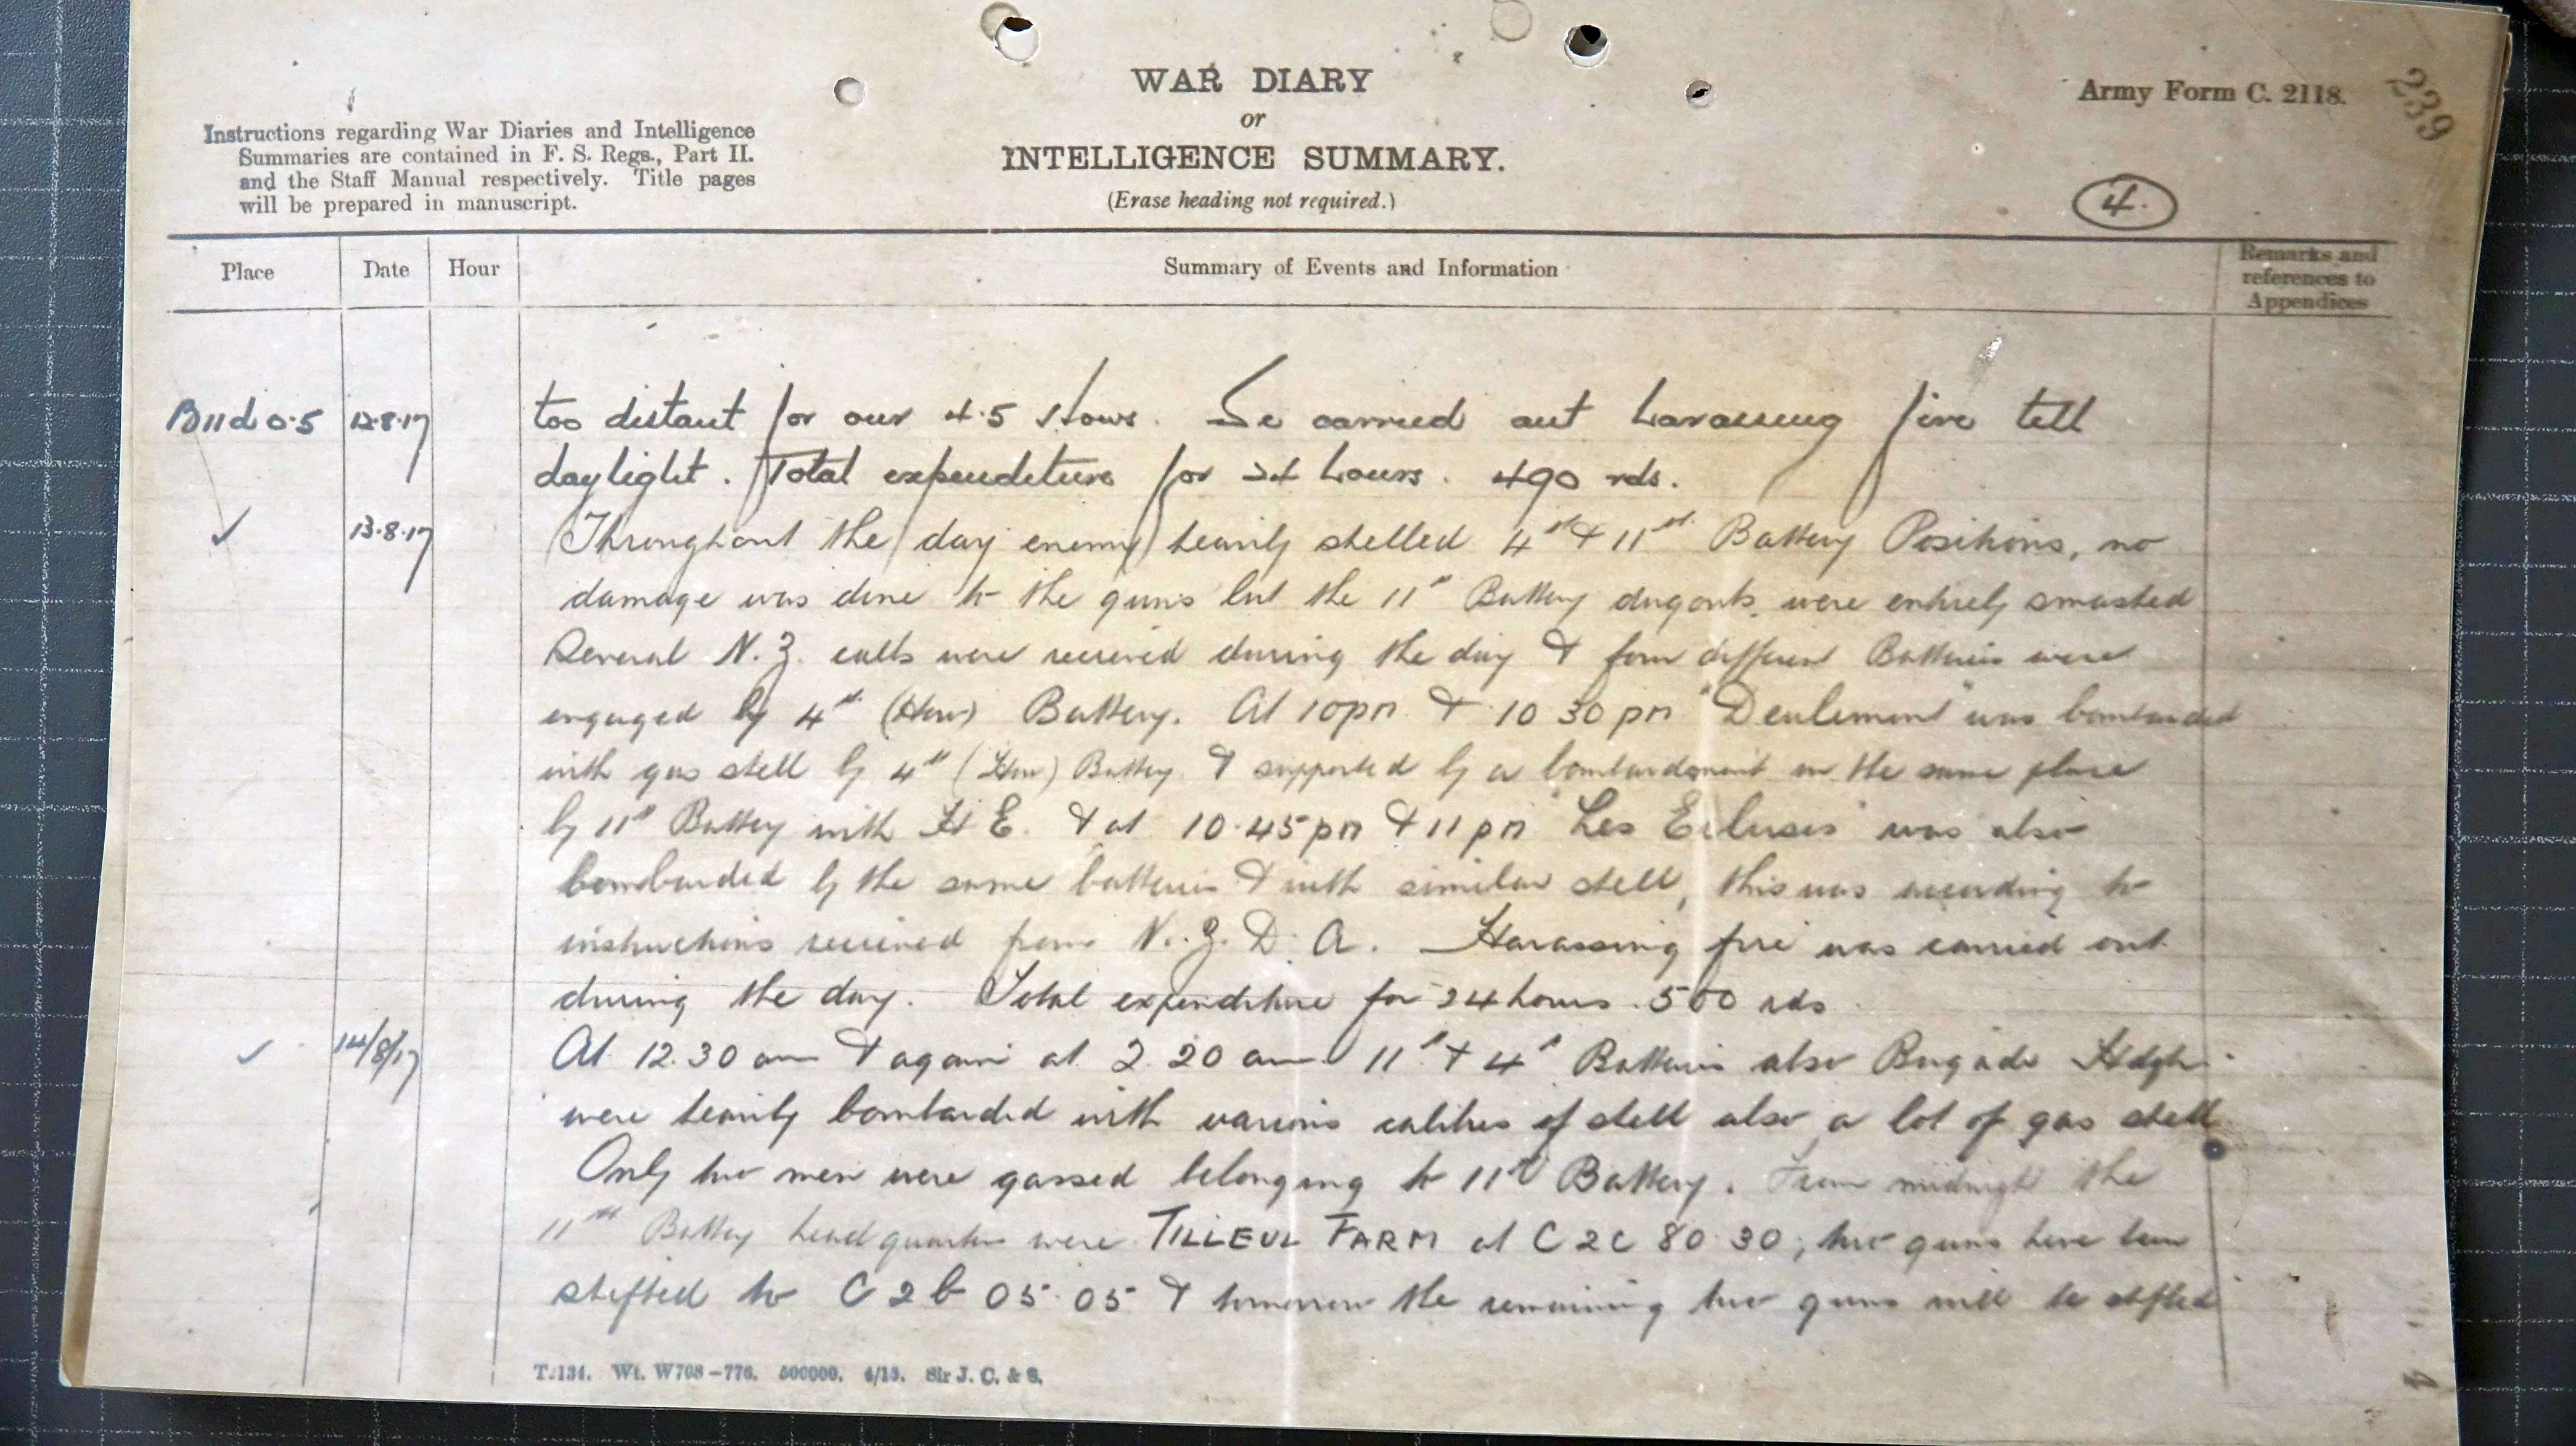 WAR DIARY
or
INTELLIGENCE SUMMARY.
(Erase heading not required.)
Army Form C. 2118.
239
Instructions regarding War Diaries and Intelligence
Summaries are contained in F. S. Regs., Part II.
and the Staff Manual respectively. Title pages
will be prepared in manuscript.
4.
Place Date Hour Summary of Events and Information Remarks and references to Appendices
B11d 0·5 12·8·17 too distant for our 4·5 Hows. We carried out harassing fire till
daylight. Total expenditure for 24 hours. 490 rds.
✓ 13·8·17 Throughout the day enemy heavily shelled 4th & 11th Battery Positions, no
damage was done to the guns but the 11th Battery dugouts were entirely smashed
Several N.Z. calls were received during the day & four different Batteries were
engaged by 4th (How) Battery. At 10pm & 10 30 pm "Deulemont" was bombarded
with gas shell by 4th (How) Battery & supported by a bombardment on the same place
by 11th Battery with H E. & at 10·45pm & 11pm "Les Ecluses" was also
bombarded by the same batteries & with similar shell, this was according to
instructions received from N.Z.D.A. Harassing fire was carried out
during the day. Total expenditure for 24 hours. 500 rds
✓ 14/8/17 At 12.30 am & again at 2.20 am 11th & 4th Batteries also Brigade Hdqrs
were heavily bombarded with various calibres of shell also a lot of gas shell
Only two men were gassed belonging to 11th Battery. From midnight the
11th Battery headquarters were TILLEUL FARM at C 2 C 80·30, two guns have been
shifted to C 2 b 05·05 & tomorrow the remaining two guns will be shifted
T.134. Wt. W708—776. 500000. 4/15. Sir J. C. & S.